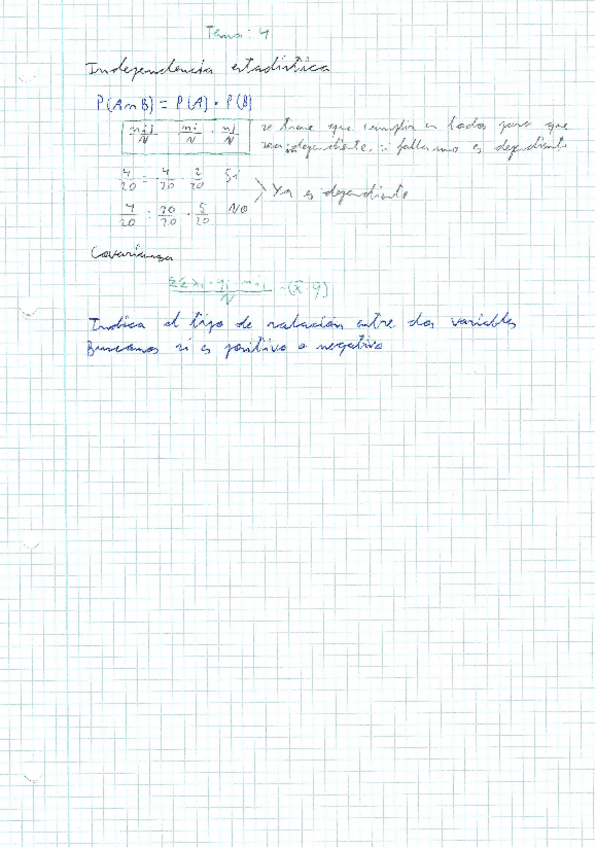 Tema: 4
Independencia estadística
P(A∩B) = P(A) · P(B)
nij/N ni/N nj/N se tiene que cumplir en todos para que
sea independiente, si falla uno es dependiente
4/20 = 4/20 · 2/20 Si
Ya es dependiente
4/20 : 10/20 · 5/20 NO
Covarianza
ΣΣxi · yi · nij / N - (x̄ · ȳ)
Indica el tipo de relación entre dos variables
Buscamos si es positivo o negativo